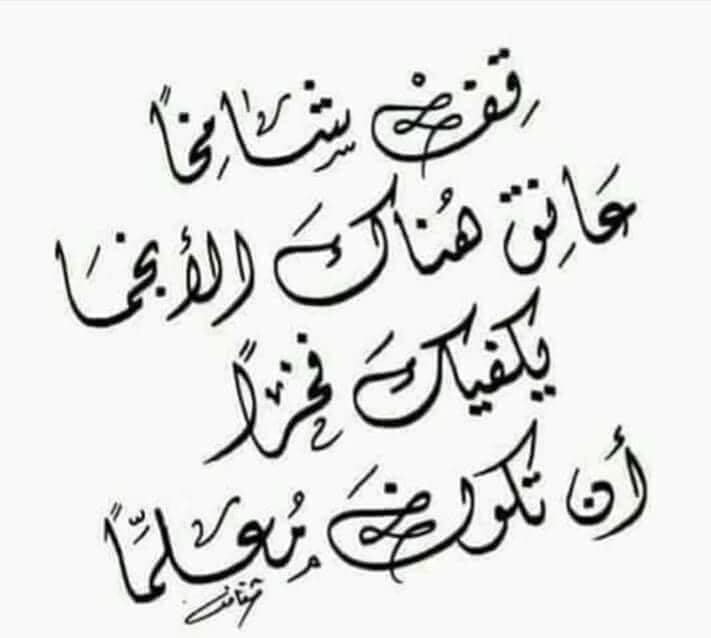 قِفْ شَامِخاً
عَانِق هُناكَ الأنجُمَا
يكفيكَ فخراً
أن تكونَ مُعَلِّماً